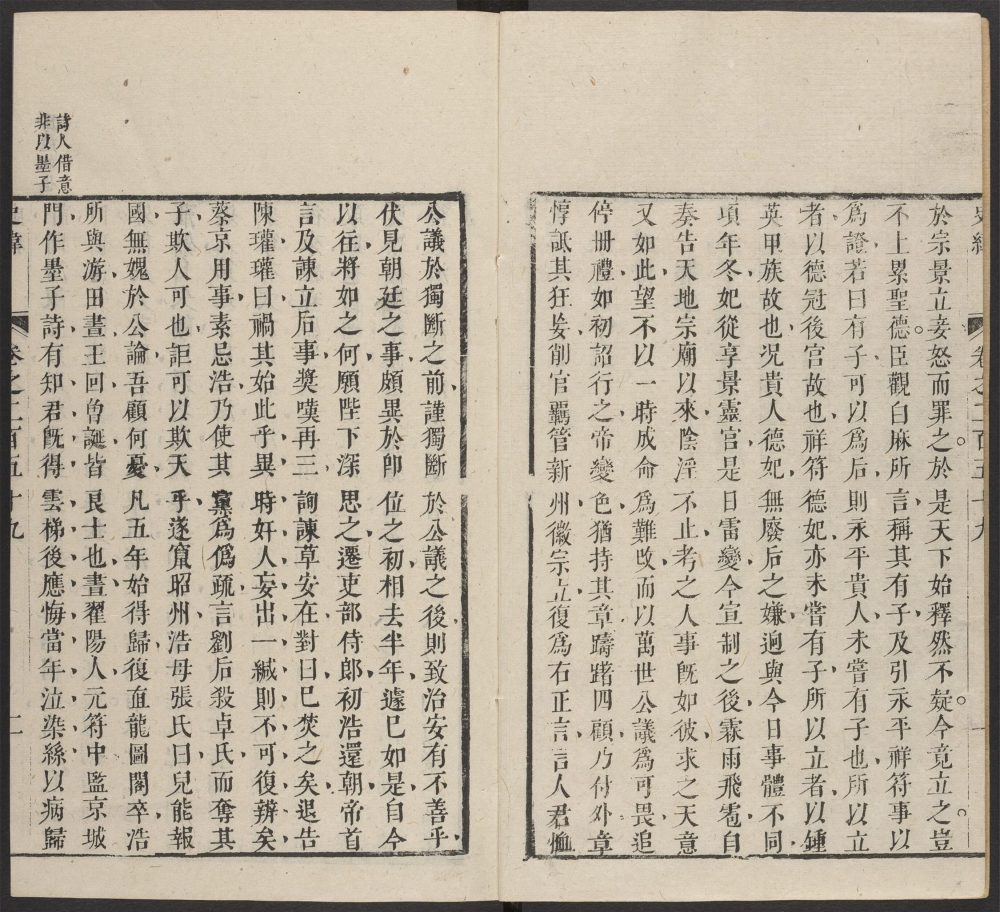 於宗景立妾怒而罪之於是天下始釋然不疑今竟立之豈
不上累聖德臣觀白麻所言稱其有子及引永平祥符事以
爲證若曰有子可以爲后則永平貴人未嘗有子也所以立
者以德冠後宮故也祥符德妃亦未嘗有子所以立者以鍾
英甲族故也况貴人德妃無廢后之嫌迥與今日事體不同
頃年冬妃從享景靈宮是日雷變今宣制之後霖雨飛雹自
奏告天地宗廟以來陰淫不止考之人事旣如彼求之天意
又如此望不以一時成命爲難改而以萬世公議爲可畏追
停册禮如初詔行之帝變色猶持其章躊躇四顧乃付外章
惇詆其狂妄削官羈管新州徽宗立復爲右正言言人君恤
公議於獨斷之前謹獨斷於公議之後則致治安有不善乎
伏見朝廷之事頗異於卽位之初相去半年遽已如是自今
以往將如之何願陛下深思之遷吏部侍郎初浩還朝帝首
言及諫立后事獎嘆再三詢諫草安在對曰已焚之矣退告
陳瓘瓘曰禍其始此乎異時奸人妄出一緘則不可復辨矣
蔡京用事素忌浩乃使其黨爲僞疏言劉后殺卓氏而奪其
子欺人可也詎可以欺天乎遂竄昭州浩母張氏曰兒能報
國無媿於公論吾顧何憂凡五年始得歸復直龍圖閣卒浩
所與游田晝王回曾誕皆良士也晝翟陽人元符中監京城
門作墨子詩有知君旣得雲梯後應悔當年泣染絲以病歸
詩人借意
非毁墨子
史緯
卷之二百五十九
二